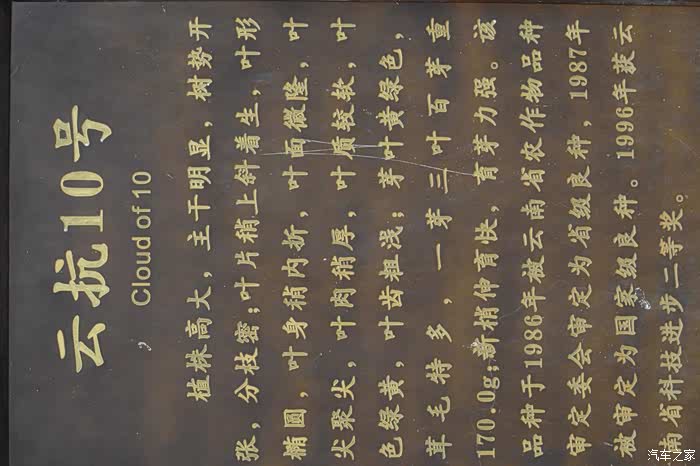 云抗10号
Cloud of 10
植株高大，主干明显，树势开
张，分枝密；叶片稍上斜着生，叶形
椭圆，叶身稍内折，叶面微隆，叶
尖聚尖，叶肉稍厚，叶质较软，叶
色绿黄，叶齿粗浅；芽叶黄绿色，
茸毛特多，一芽三叶百芽重
170.0g；新梢伸育快，育芽力强。该
品种于1986年被云南省农作物品种
审定委会审定为省级良种，1987年
被审定为国家级良种。1996年获云
南省科技进步二等奖。
汽车之家